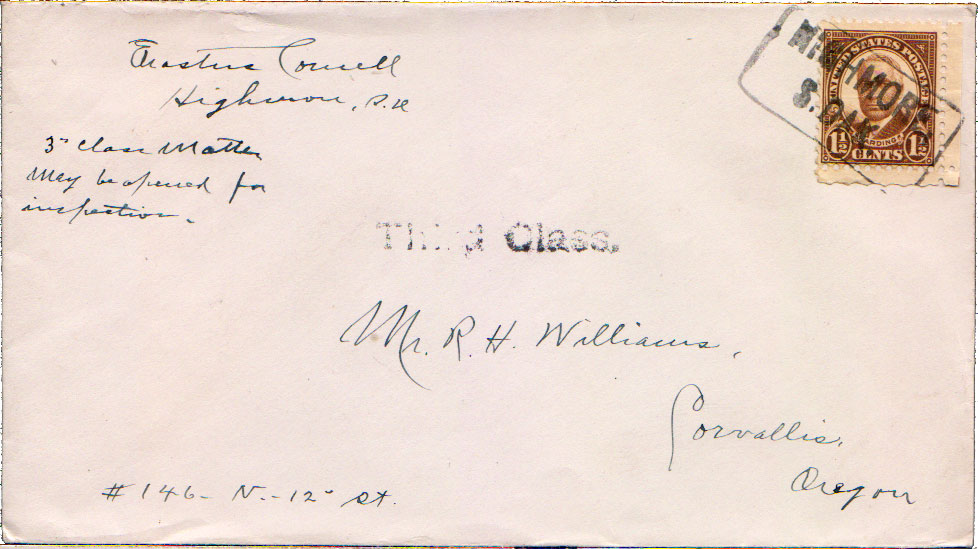 Erastus Cornell
Highmore, S.D.
3d Class Matter
May be opened for
inspection.
HIGHMORE
S. DAK.
UNITED STATES POSTAGE
HARDING
1½ CENTS 1½
Third Class.
Mr. R. H. Williams,
Corvallis,
Oregon
# 146- N.- 12" St.